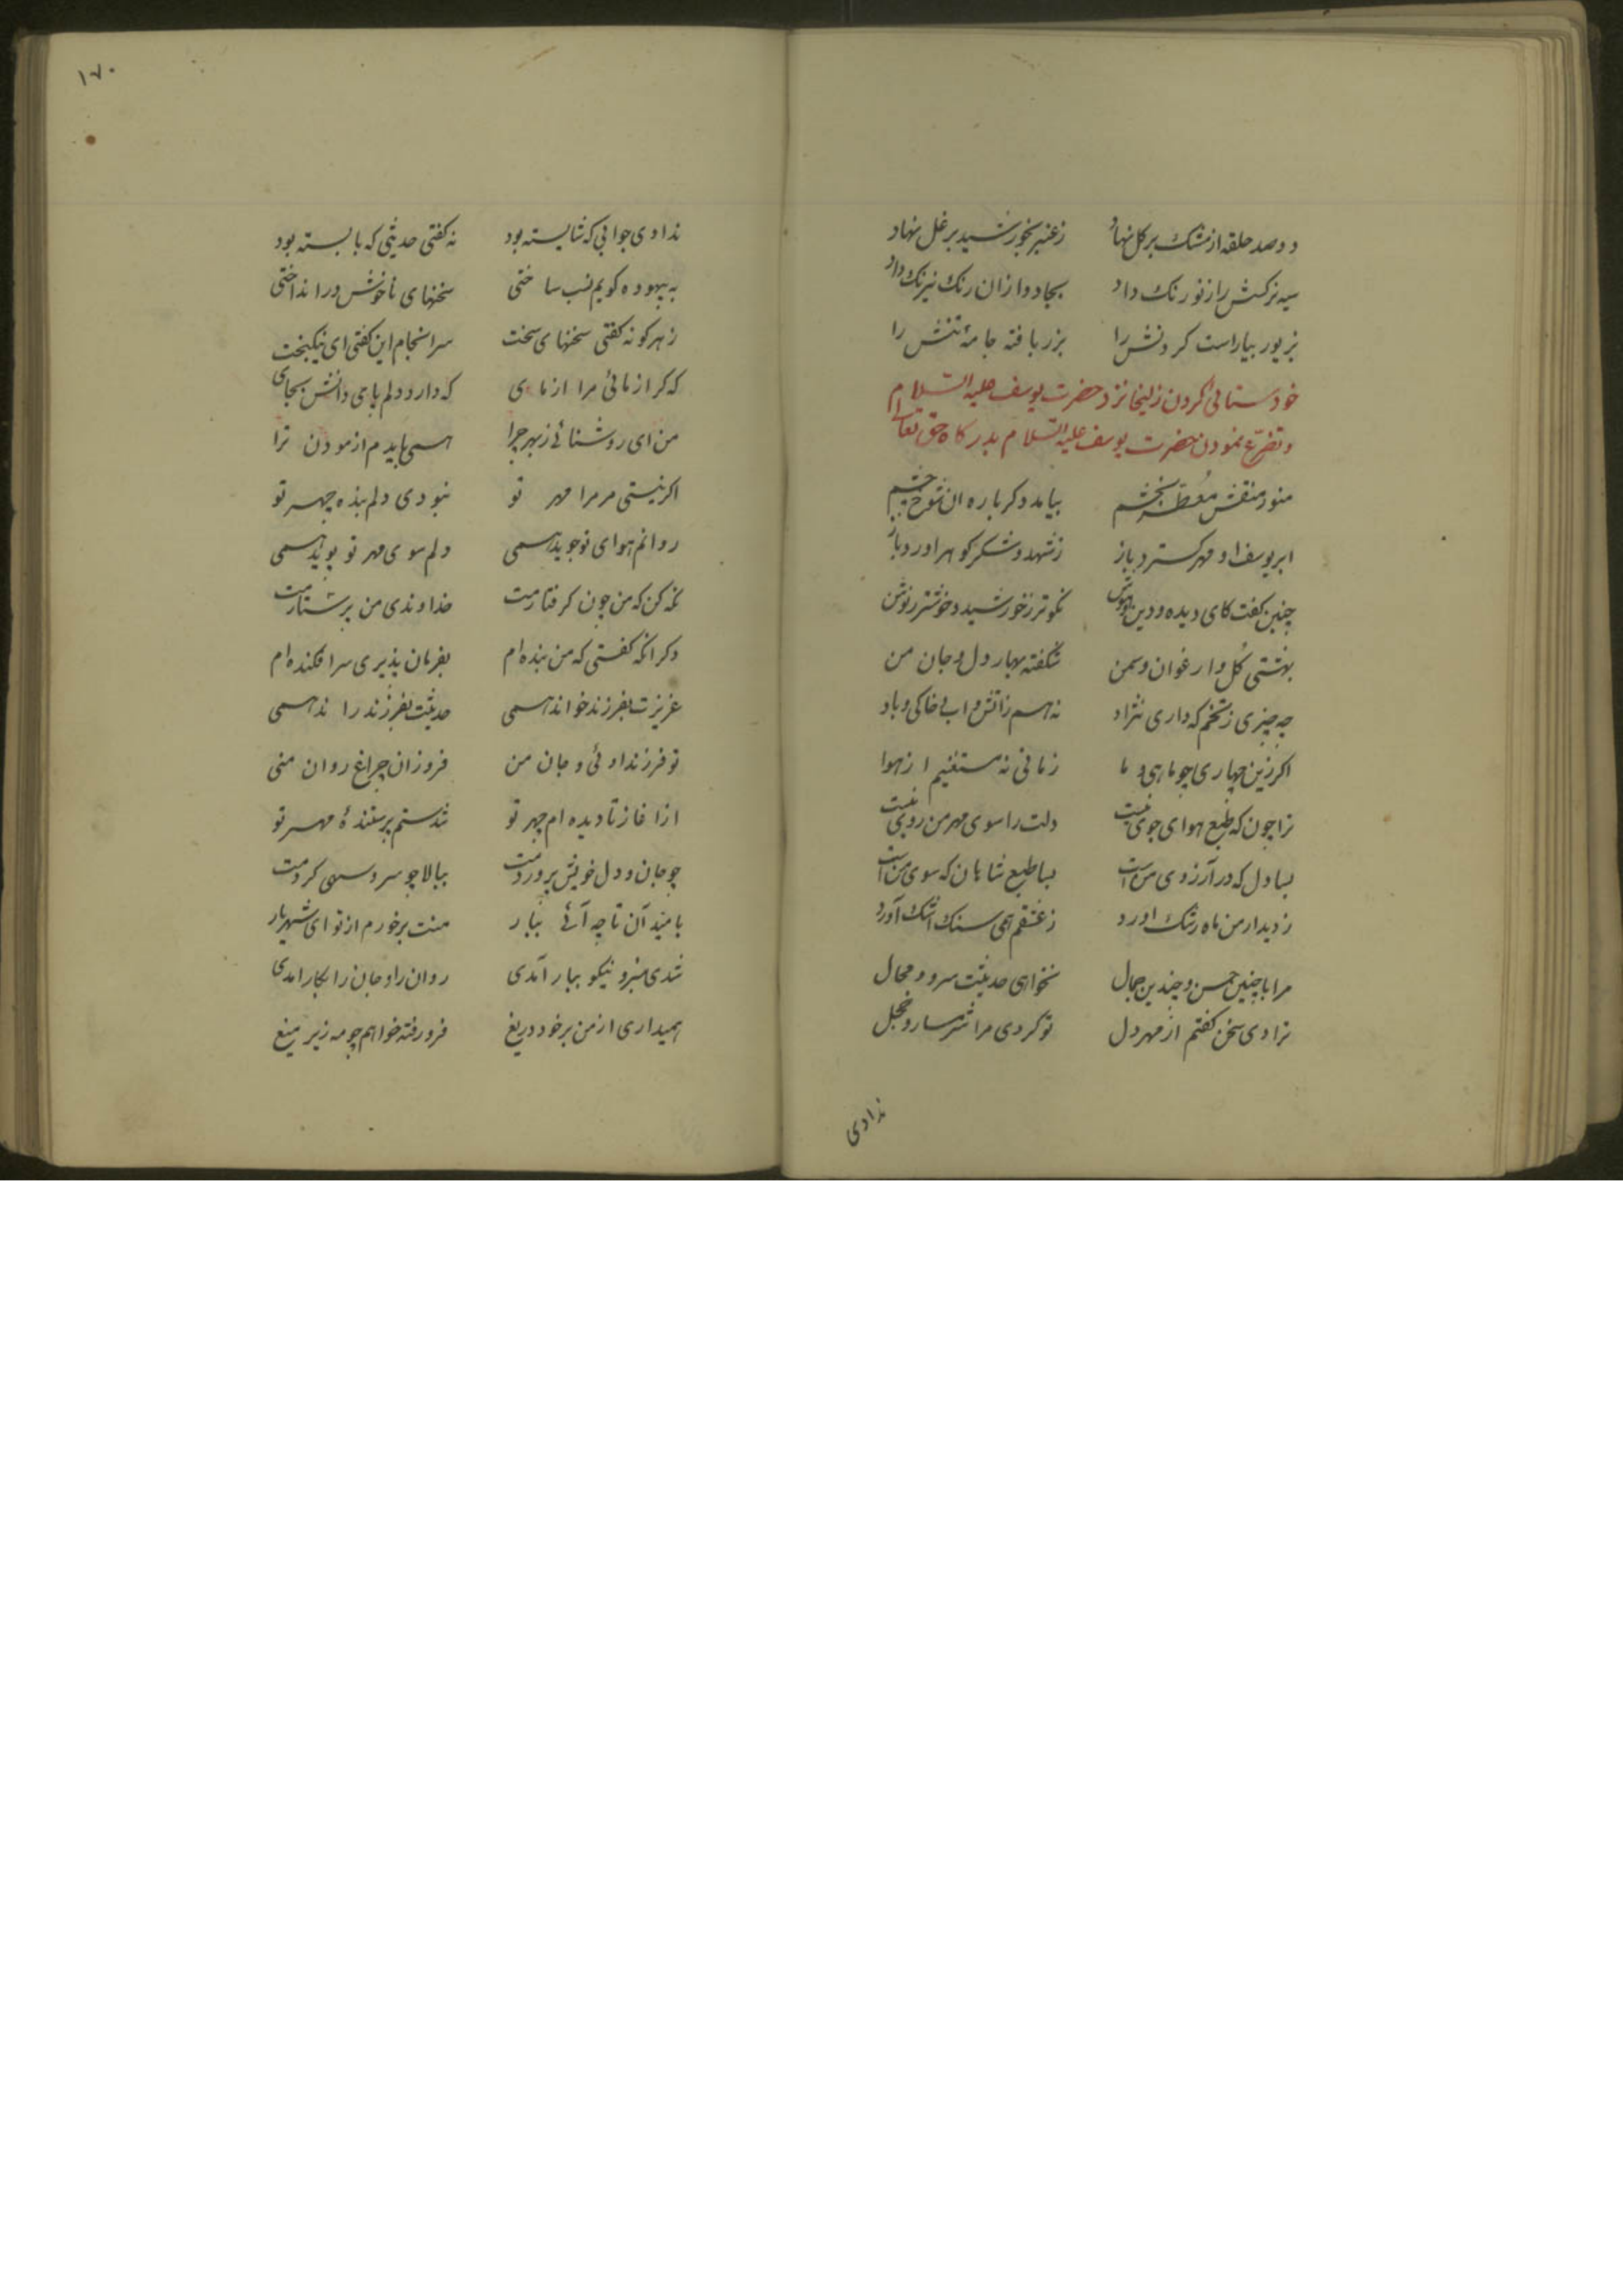 دو صد حلقه از مشک بر کل نهاد زعنبر بخورشید بر غل نهاد
سیه نرکسش را ز نو رنک داد بجادو ازان رنک نیرنک داد
بزیور بیاراست کردنش را بزر بافته جامهٔ تنش را
خودستائی کردن زلیخا نزد حضرت یوسف علیه السلام
و تضرع نمودن حضرت یوسف علیه السلام بدرکاه حق تعالی
منور منقش معطر بخشم بیامد دکر باره ان شوخ چشم
ابر یوسف او مهر کسترد باز زشهد و شکر کوهر اورد باز
چنین کفت کای دیده و دین و هوش نکوتر ز خورشید و خوشتر ز نوش
بهشتی کل و ارغوان و سمن شکفته بهار دل و جان من
چه چیزی ز تخم که داری نژاد نه هم زاتش و اب و خاکی و باد
اکر زین چهاری چو ماهی و ما زمانی نه مستغنیم از هوا
ترا چون که طبع هوای جوی نیست دلت را سوی مهر من روی نیست
بسا دل که در آرزوی من است بسا طبع شاهان که سوی من است
ز دیدار من ماه رشک اورد ز عشقم همی سنک اشک آورد
مرا با چنین حسن و چندین جمال نخواهی حدیثت سرود محال
ترا دی سخن کفتم از مهر دل تو کردی مرا شرمسار و خجل
ندادی
۱۷۰
ندادی جوابی که شایسته بود نه کفتی حدیثی که بابسته بود
به بیهوده کویم نسب ساختی سخنهای ناخوش در انداختی
زهر کونه کفتی سخنهای سخت سرانجام این کفتی ای نیکبخت
که کر ازمائی مرا ازمای که دارد دلم پای دانش بجای
من ای روشنائی ز بهر چرا همی بایدم ازمودن ترا
اکر نیستی مر مرا مهر تو نبودی دلم بنده چهر تو
روانم هوای تو جوید همی دلم سوی مهر تو پوید همی
نکه کن که من چون کرفتارمت خداوندی من پرستارمت
دکر انکه کفتی که من بنده ام بفرمان پذیری سرافکنده ام
عزیزت بفرزند خواند همی حدیثت بفرزند راند همی
تو فرزند اوئی و جان من فروزان چراغ روان منی
از اغاز تا دیده ام چهر تو شدستم پرستندهٔ مهر تو
چو جان و دل خویش پروردمت ببالا چو سرو سهی کردمت
بامید آن تا چه آئی ببار منت برخورم از تو ای شهریار
شدی سبز و نیکو ببار آمدی روان را و جان را بکار امدی
همیداری از من بر خود دریغ فرو رفته خواهم چو مه زیر میغ